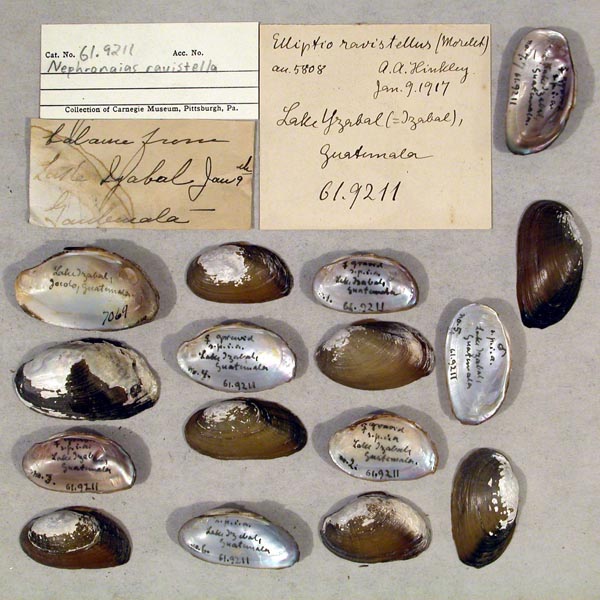 Cat. No. 61.9211 Acc. No.
Nephronaias ravistella
Collection of Carnegie Museum, Pittsburgh, Pa.
from
Lake Izabal Jan 9th
Guatemala
Elliptio ravistellus (Morelet)
an. 5808 A.A. Hinkley
Jan. 9. 1917
Lake Yzabal (=Izabal),
Guatemala
61.9211
61.9211
Lake Izabal,
Guatemala
7069
♀ gravid
Lake Izabal,
Guatemala
61.9211
♀ gravid
s.p.i.a.
Lake Izabal,
Guatemala
no. 4. 61.9211
♂
s.p.i.a.
Lake Izabal,
Guatemala
no. 5 61.9211
s.p.i.a.
Lake Izabal,
Guatemala
no. 3. 61.9211
♀ gravid
s.p.i.a.
Lake Izabal,
Guatemala
no. 2. 61.9211
s.p.i.a.
Lake Izabal,
Guatemala
no 6. 61.9211